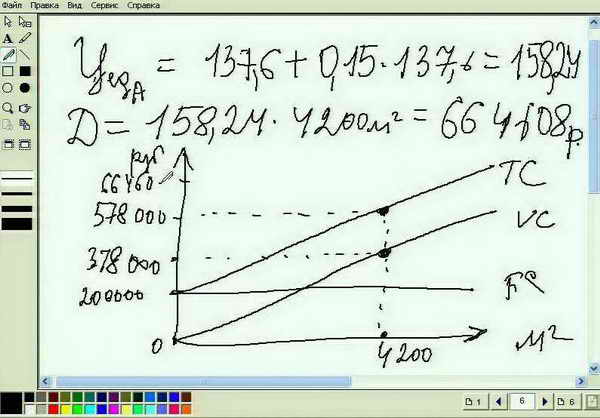 Файл Правка Вид Сервис Справка
Ц ед А = 137,6 + 0,15 · 137,6 = 158,24
Д = 158,24 · 4200 м² = 664608 р.
руб
66460
578 000
378 000
200000
0
TC
VC
FC
4200
м²
1
6
6